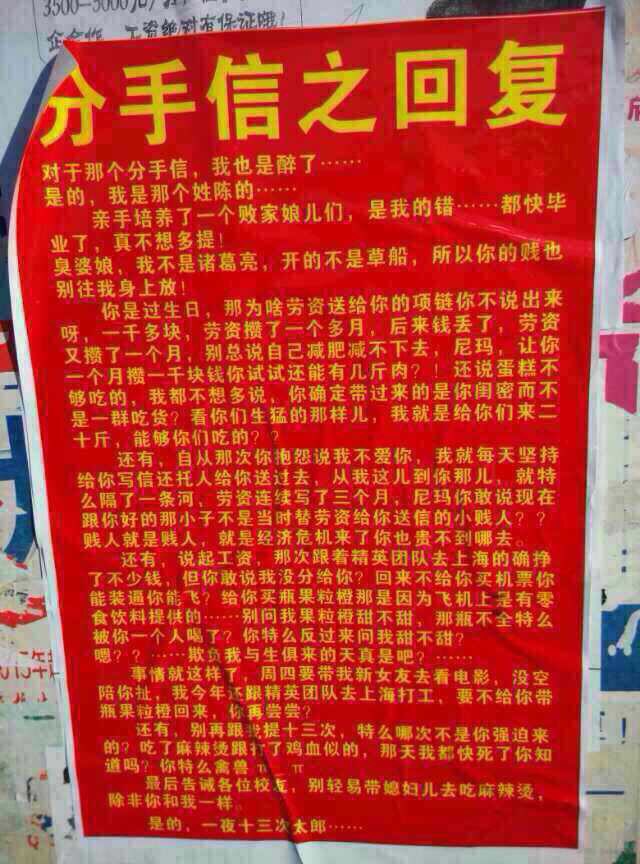 3500-5000元/
工资绝对有保证哦!
分手信之回复
对于那个分手信，我也是醉了……
是的，我是那个姓陈的……
亲手培养了一个败家娘儿们，是我的错……都快毕
业了，真不想多提！
臭婆娘，我不是诸葛亮，开的不是草船，所以你的贱也
别往我身上放！
你是过生日，那为啥劳资送给你的项链你不说出来
呀，一千多块，劳资攒了一个多月，后来钱丢了，劳资
又攒了一个月，别总说自己减肥减不下去，尼玛，让你
一个月攒一千块钱你试试还能有几斤肉？！还说蛋糕不
够吃的，我都不想多说，你确定带过来的是你闺密而不
是一群吃货？看你们生猛的那样儿，我就是给你们来二
十斤，能够你们吃的？？
还有，自从那次你抱怨说我不爱你，我就每天坚持
给你写信还托人给你送过去，从我这儿到你那儿，就特
么隔了一条河，劳资连续写了三个月，尼玛你敢说现在
跟你好的那小子不是当时替劳资给你送信的小贱人？？
贱人就是贱人，就是经济危机来了你也贵不到哪去。
还有，说起工资，那次跟着精英团队去上海的确挣
了不少钱，但你敢说我没分给你？回来不给你买机票你
能装逼你能飞？给你买瓶果粒橙那是因为飞机上是有零
食饮料提供的……别问我果粒橙甜不甜，那瓶不全特么
被你一个人喝了？你特么反过来问我甜不甜？
嗯？？……欺负我与生俱来的天真是吧？……
事情就这样了，周四要带我新女友去看电影，没空
陪你扯，我今年还跟精英团队去上海打工，要不给你带
瓶果粒橙回来，你再尝尝？
还有，别再跟我提十三次，特么哪次不是你强迫来
的？吃了麻辣烫跟打了鸡血似的，那天我都快死了你知
道吗？你特么禽兽π＿π
最后告诫各位校友，别轻易带媳妇儿去吃麻辣烫，
除非你和我一样。
是的，一夜十三次太郎……